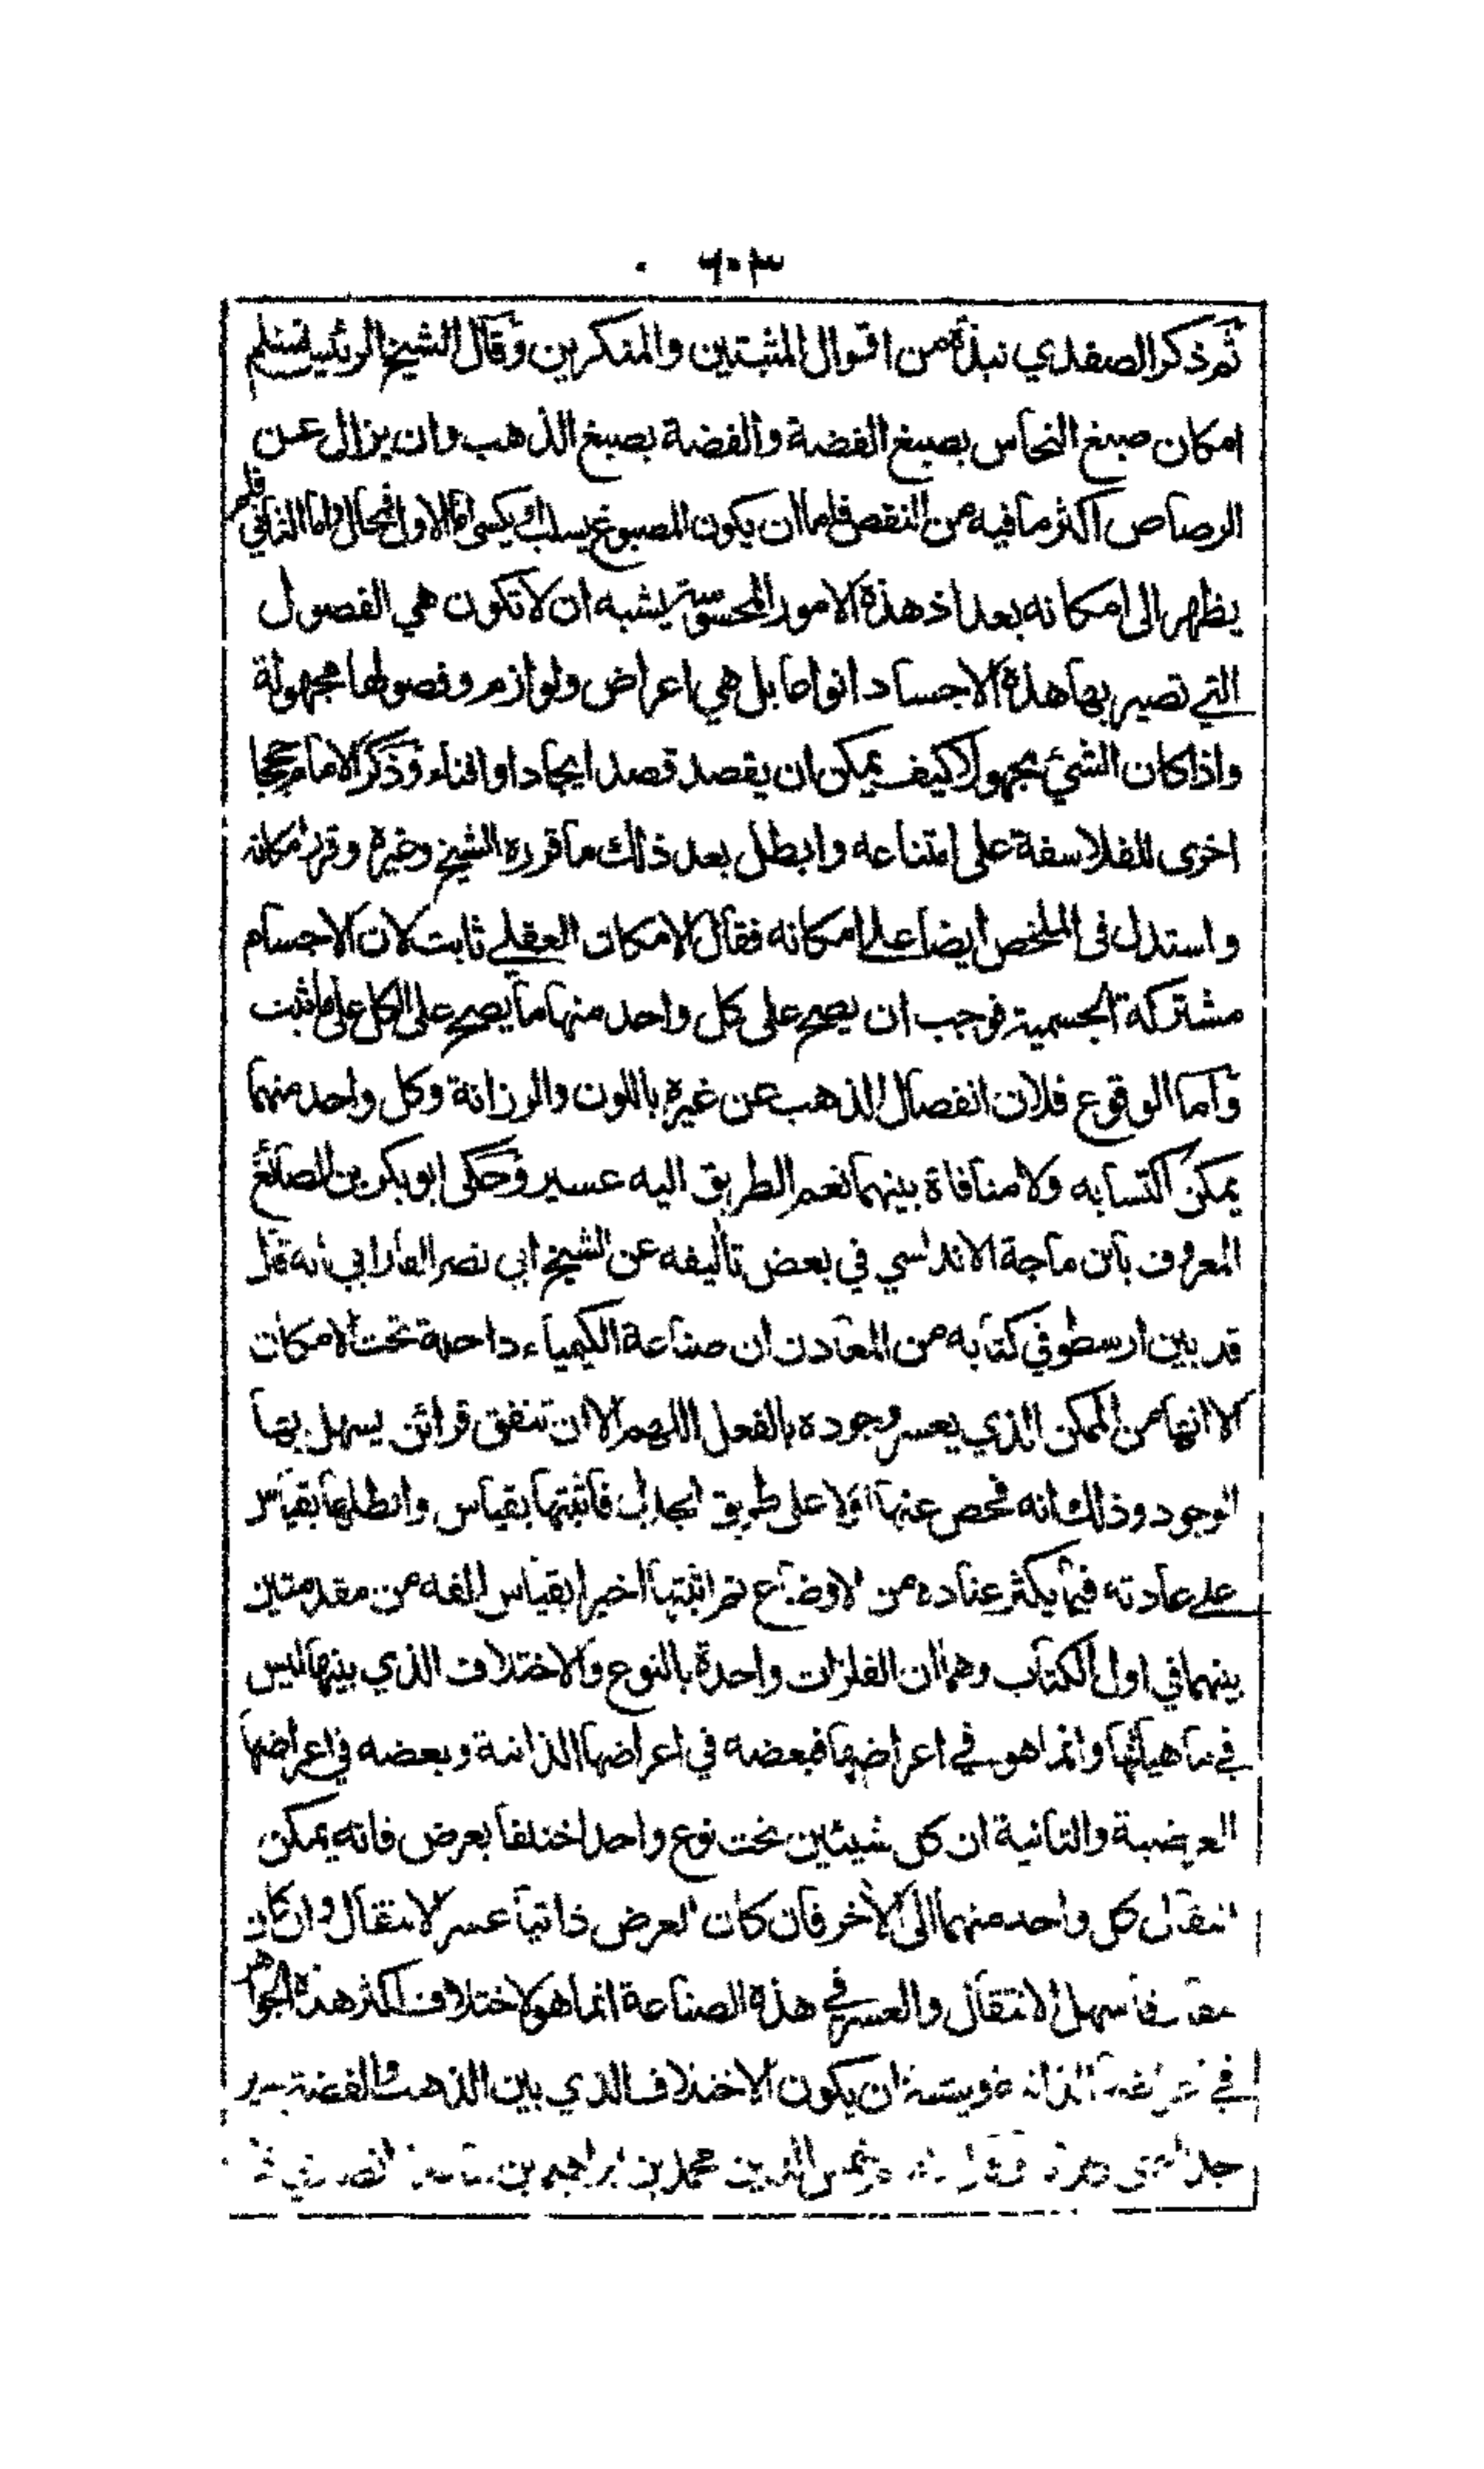 ٦٠٣
ثم ذكر الصفدي نبذة من اقوال المثبتين والمنكرين وقال الشيخ الرئيس نسلم
امكان صبغ النحاس بصبغ الفضة والفضة بصبغ الذهب وان يزال عن
الرصاص اكثر ما فيه من النقص فاما ان يكون المصبوغ يسلب يكسى اما الاول فمحال واما الثاني فلم
يظهر الى امكانه بعد اذ هذه الامور المحسوسة يشبه ان لا تكون هي الفصول
التي تصير بها هذه الاجساد انواعا بل هي اعراض ولوازم وفصولها مجهولة
واذا كان الشيء مجهولا كيف يمكن ان يقصد قصد ايجاد او افناء وذكر الامام حججا
اخرى للفلاسفة على امتناعه وابطل بعد ذلك ما قرره الشيخ وغيره وقرر امكانه
واستدل في الملخص ايضا على امكانه فقال الامكان العقلي ثابت لان الاجسام
مشتركة الجسمية فوجب ان يصح على كل واحد منها ما يصح على الكل على ما ثبت
واما الوقوع فلان انفصال الذهب عن غيره باللون والرزانة وكل واحد منهما
يمكن اكتسابه ولا منافاة بينهما نعم الطريق اليه عسير وحكى ابو بكر بن الصائغ
المعروف بابن ماجة الاندلسي في بعض تأليفه عن الشيخ ابي نصر الفارابي انه قال
قد بين ارسطو في كتابه من المعادن ان صناعة الكيمياء داخلة تحت الامكان
الا انها من الممكن الذي يعسر وجوده بالفعل اللهم الا ان تتفق قرائن يسهل بها
الوجود وذلك انه فحص عنها اولا على طريق الجدل فاثبتها بقياس وابطلها بقياس
على عادته فيما يكثر عناده من الاوضاع ثم اثبتها اخيرا بقياس الفه من مقدمتين
بينهما في اول الكتاب وهما ان الفلزات واحدة بالنوع والاختلاف الذي بينها ليس
في ماهياتها وانما هو في اعراضها فبعضه في اعراضها الذاتية وبعضه في اعراضها
العرضية والثانية ان كل شيئين تحت نوع واحد اختلفا بعرض فانه يمكن
انتقال كل واحد منهما الى الآخر فان كان العرض ذاتيا عسر الانتقال وان كان
مفارقا سهل الانتقال والعسر في هذه الصناعة انما هو لاختلاف اكثر هذه الجواهر
في اعراضها الذاتية ويشبه ان يكون الاختلاف الذي بين الذهب والفضة يسير
جدا شمس الدين محمد بن ابراهيم بن